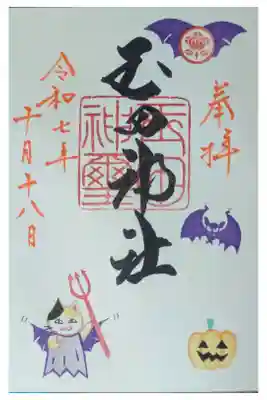 奉拝
玉田神社
玉田
神璽
令和七年
十月十八日